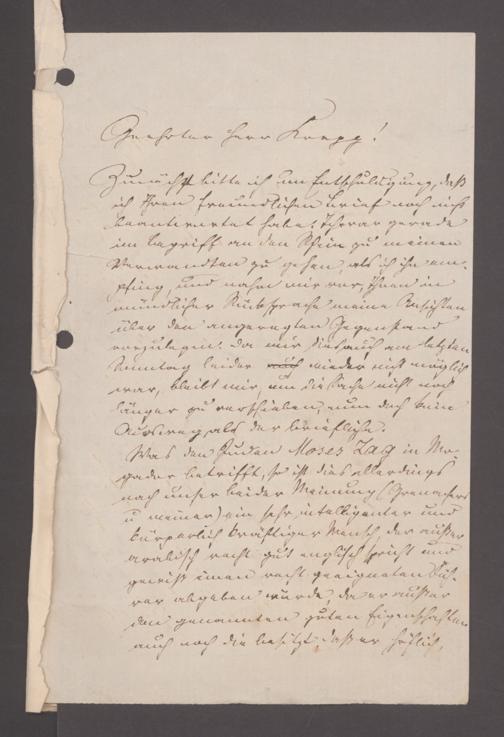 Geehrter Herr Knapp!
Zunächst bitte ich um Entschuldigung, daß
ich Ihren freundlichen Brief noch nicht
beantwortet habe. Ich war gerade
im Begriff an den Rhein zu meinen
Verwandten zu gehen, als ich ihn em-
pfing, und nahm mir vor, Ihnen in
mündlicher Rücksprache meine Ansichten
über den angeregten Gegenstand
vorzulegen. Da mir dies auch am letzten
Sonntag leider wieder nicht möglich
war, bleibt mir, um die Sache nicht noch
länger zu verschieben, nun doch kein
Ausweg, als der briefliche.
Was den Juden Moses Zag in Mo-
gador betrifft, so ist dies allerdings
nach unser beider Meinung (Grenachers
u meiner) ein sehr intelligenter und
körperlich kräftiger Mensch, der außer
arabisch recht gut englisch spricht und
gewiß einen recht geeigneten Füh-
rer abgeben würde, da er außer
den genannten guten Eigenschaften
auch noch die besitzt, daß er höflich,